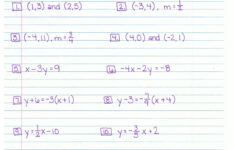 1. (1,3) and (2,5) 2. (-3,4), m=
3. (-4,11), m=3/4 4. (4,0) and (-2,1)
5. x-3y=9 6. -4x-2y=-8
7. y+6=-3(x+1) 8. y-3=-7/4(x+4)
9. y=1/2x-10 10. y=-3/5x+2